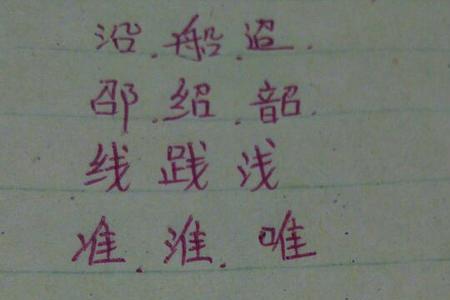 沿.船.迢.
邵.绍.韶.
线 践 浅
准.淮.唯